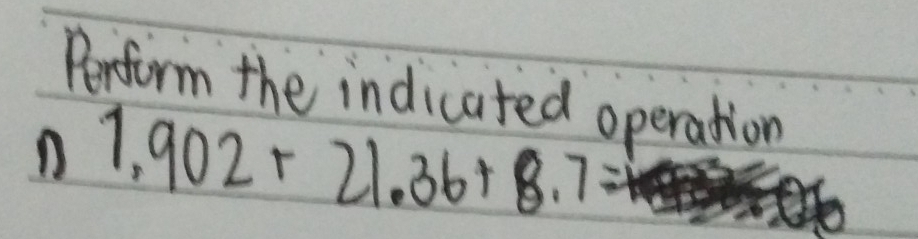 Perform the indicated operation
1) 1.902 + 21.36 + 8.7 =